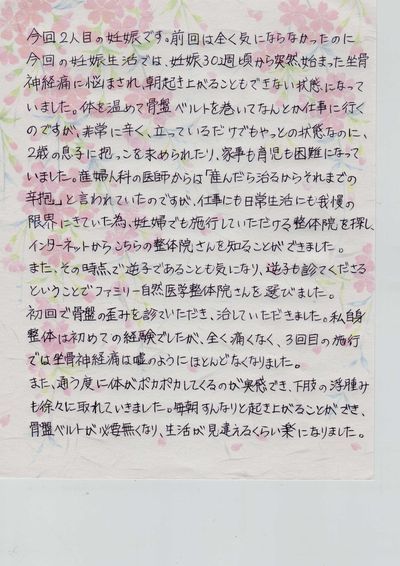 今回2人目の妊娠です。前回は全く気にならなかったのに
今回の妊娠生活では、妊娠30週頃から突然始まった坐骨
神経痛に悩まされ、朝起き上がることもできない状態になって
いました。体を温めて骨盤ベルトを巻いてなんとか仕事に行く
のですが、非常に辛く、立っているだけでもやっとの状態なのに、
2歳の息子に抱っこを求められたり、家事も育児も困難になって
いました。産婦人科の医師からは「産んだら治るからそれまでの
辛抱。」と言われていたのですが、仕事にも日常生活にも我慢の
限界にきていた為、妊婦でも施行していただける整体院を探し
インターネットからこちらの整体院さんを知ることができました。
また、その時点で逆子であることも気になり、逆子も診てくださる
ということでファミリー自然医学整体院さんを選びました。
初回で骨盤の歪みを診ていただき、治していただきました。私自身
整体は初めての経験でしたが、全く痛くなく、3回目の施行
では坐骨神経痛は嘘のようにほとんどなくなりました。
また、通う度に体がポカポカしてくるのが実感でき、下肢の浮腫み
も徐々に取れていきました。毎朝すんなりと起き上がることができ、
骨盤ベルトが必要無くなり、生活が見違えるくらい楽になりました。